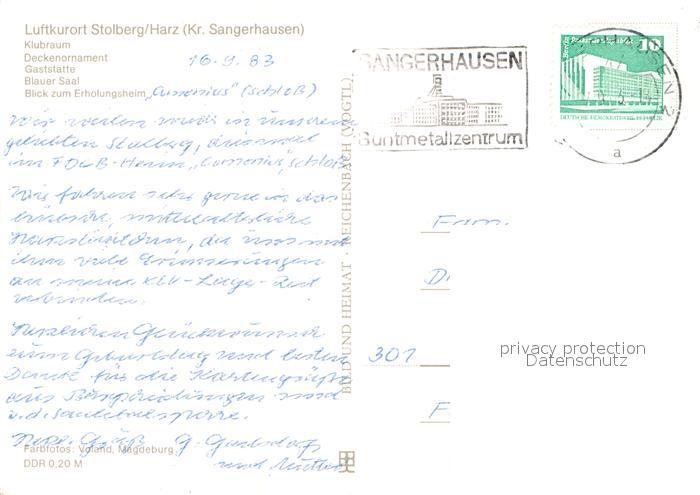 Luftkurort Stolberg/Harz (Kr. Sangerhausen)
Klubraum
Deckenornament
Gaststätte
Blauer Saal
Blick zum Erholungsheim „Comenius" (Schloß)
16.9.83
Wir weilen wieder in unserem
geliebten Stolberg, diesmal
im FDGB-Heim „Comenius", Schloß
Wir fahren sehr gerne in das
mittelalterliche
Harzstädtchen, da uns mit
ihm viele Erinnerungen
an meine KLV-Lager-Zeit
verbinden.
Herzlichen Glückwunsch
zum Geburtstag und besten
Dank für die Kartengrüße
aus und
v. d. Saaletalsperre.
Herzl. Grüße G.
und Mutter
Farbfotos: Voland, Magdeburg
DDR 0,20 M
BILD UND HEIMAT · REICHENBACH (VOGTL)
SANGERHAUSEN
Buntmetallzentrum
a
Berlin, Palast der Republik
10
DEUTSCHE DEMOKRATISCHE REPUBLIK
Fam.
D
301
F
privacy protection
Datenschutz